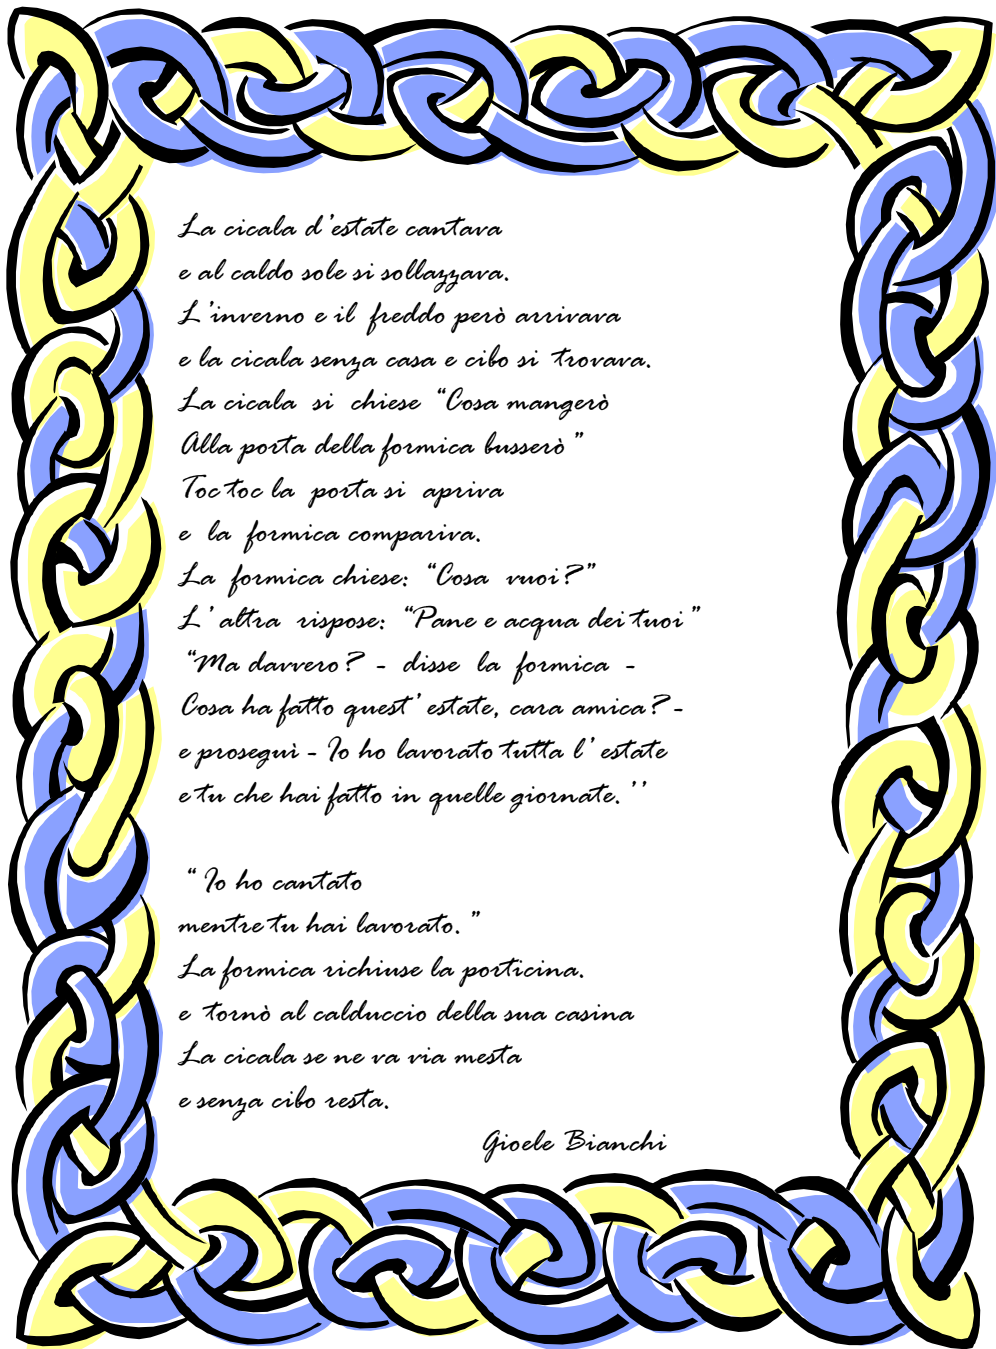 La cicala d'estate cantava
e al caldo sole si sollazzava.
L'inverno e il freddo però arrivava
e la cicala senza casa e cibo si trovava.
La cicala si chiese “Cosa mangerò
Alla porta della formica busserò”
Toc toc la porta si apriva
e la formica compariva.
La formica chiese: “Cosa vuoi?”
L' altra rispose: “Pane e acqua dei tuoi”
“Ma davvero? - disse la formica -
Cosa ha fatto quest' estate, cara amica? -
e proseguì - Io ho lavorato tutta l' estate
e tu che hai fatto in quelle giornate. ''
“ Io ho cantato
mentre tu hai lavorato.”
La formica richiuse la porticina.
e tornò al calduccio della sua casina
La cicala se ne va via mesta
e senza cibo resta.
Gioele Bianchi